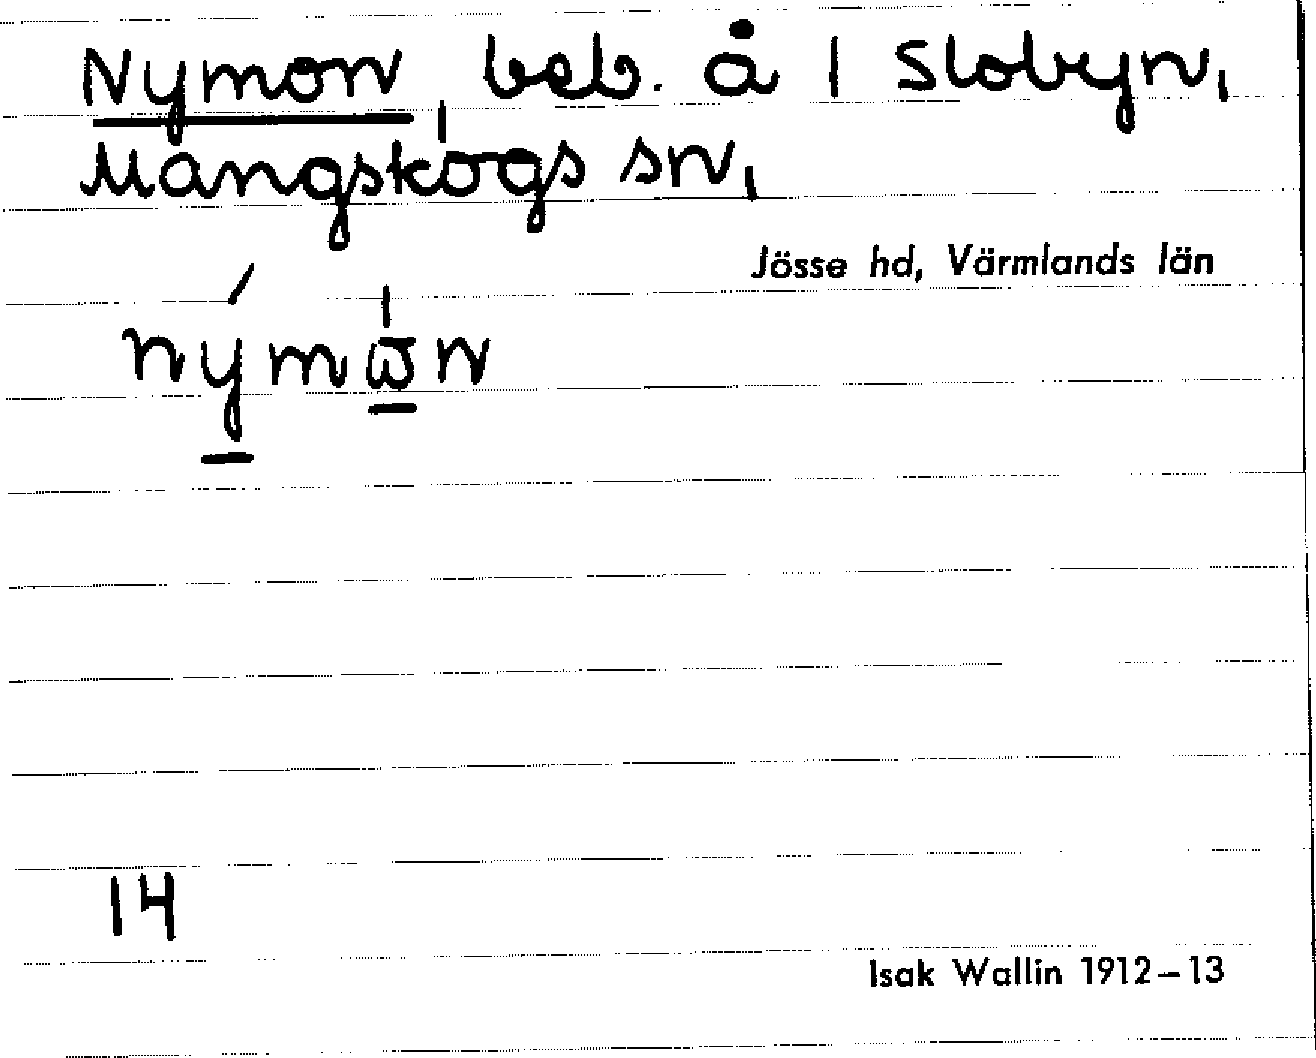 Nymon, beb. å 1 Slobyn,
Mangskogs sn,
Jösse hd, Värmlands län
14
Isak Wallin 1912–13